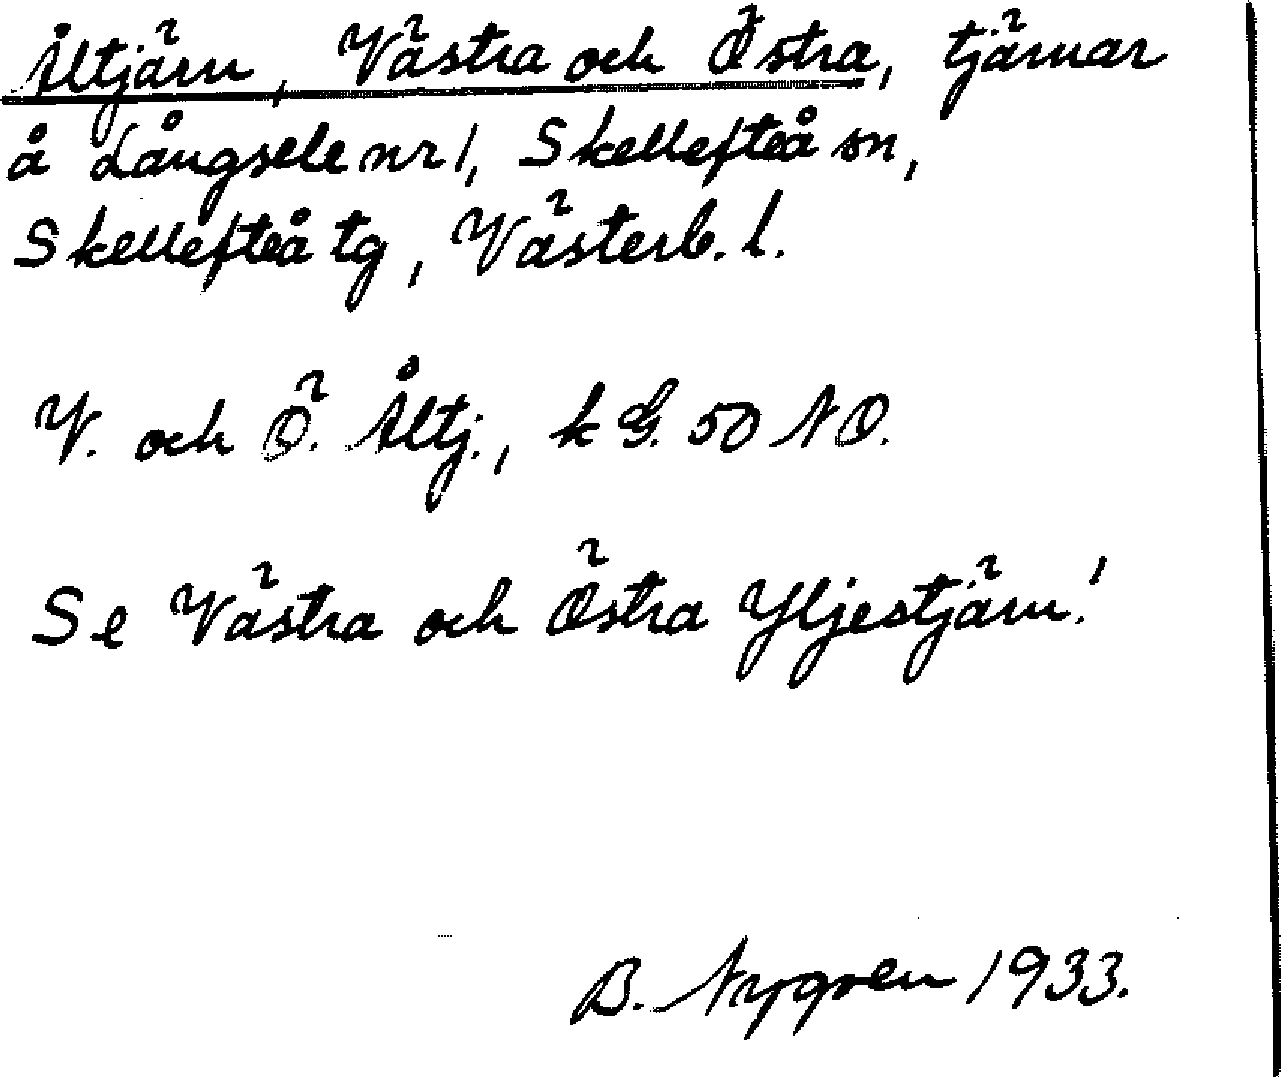 Åltjärn, Västra och Östra, tjärnar
å Långsele nr 1, Skellefteå sn,
Skellefteå tg, Västerb. l.
V. och Ö. Åltj., kG. 50 NO.
Se Västra och Östra Yljestjärn!
B. Nygren 1933.